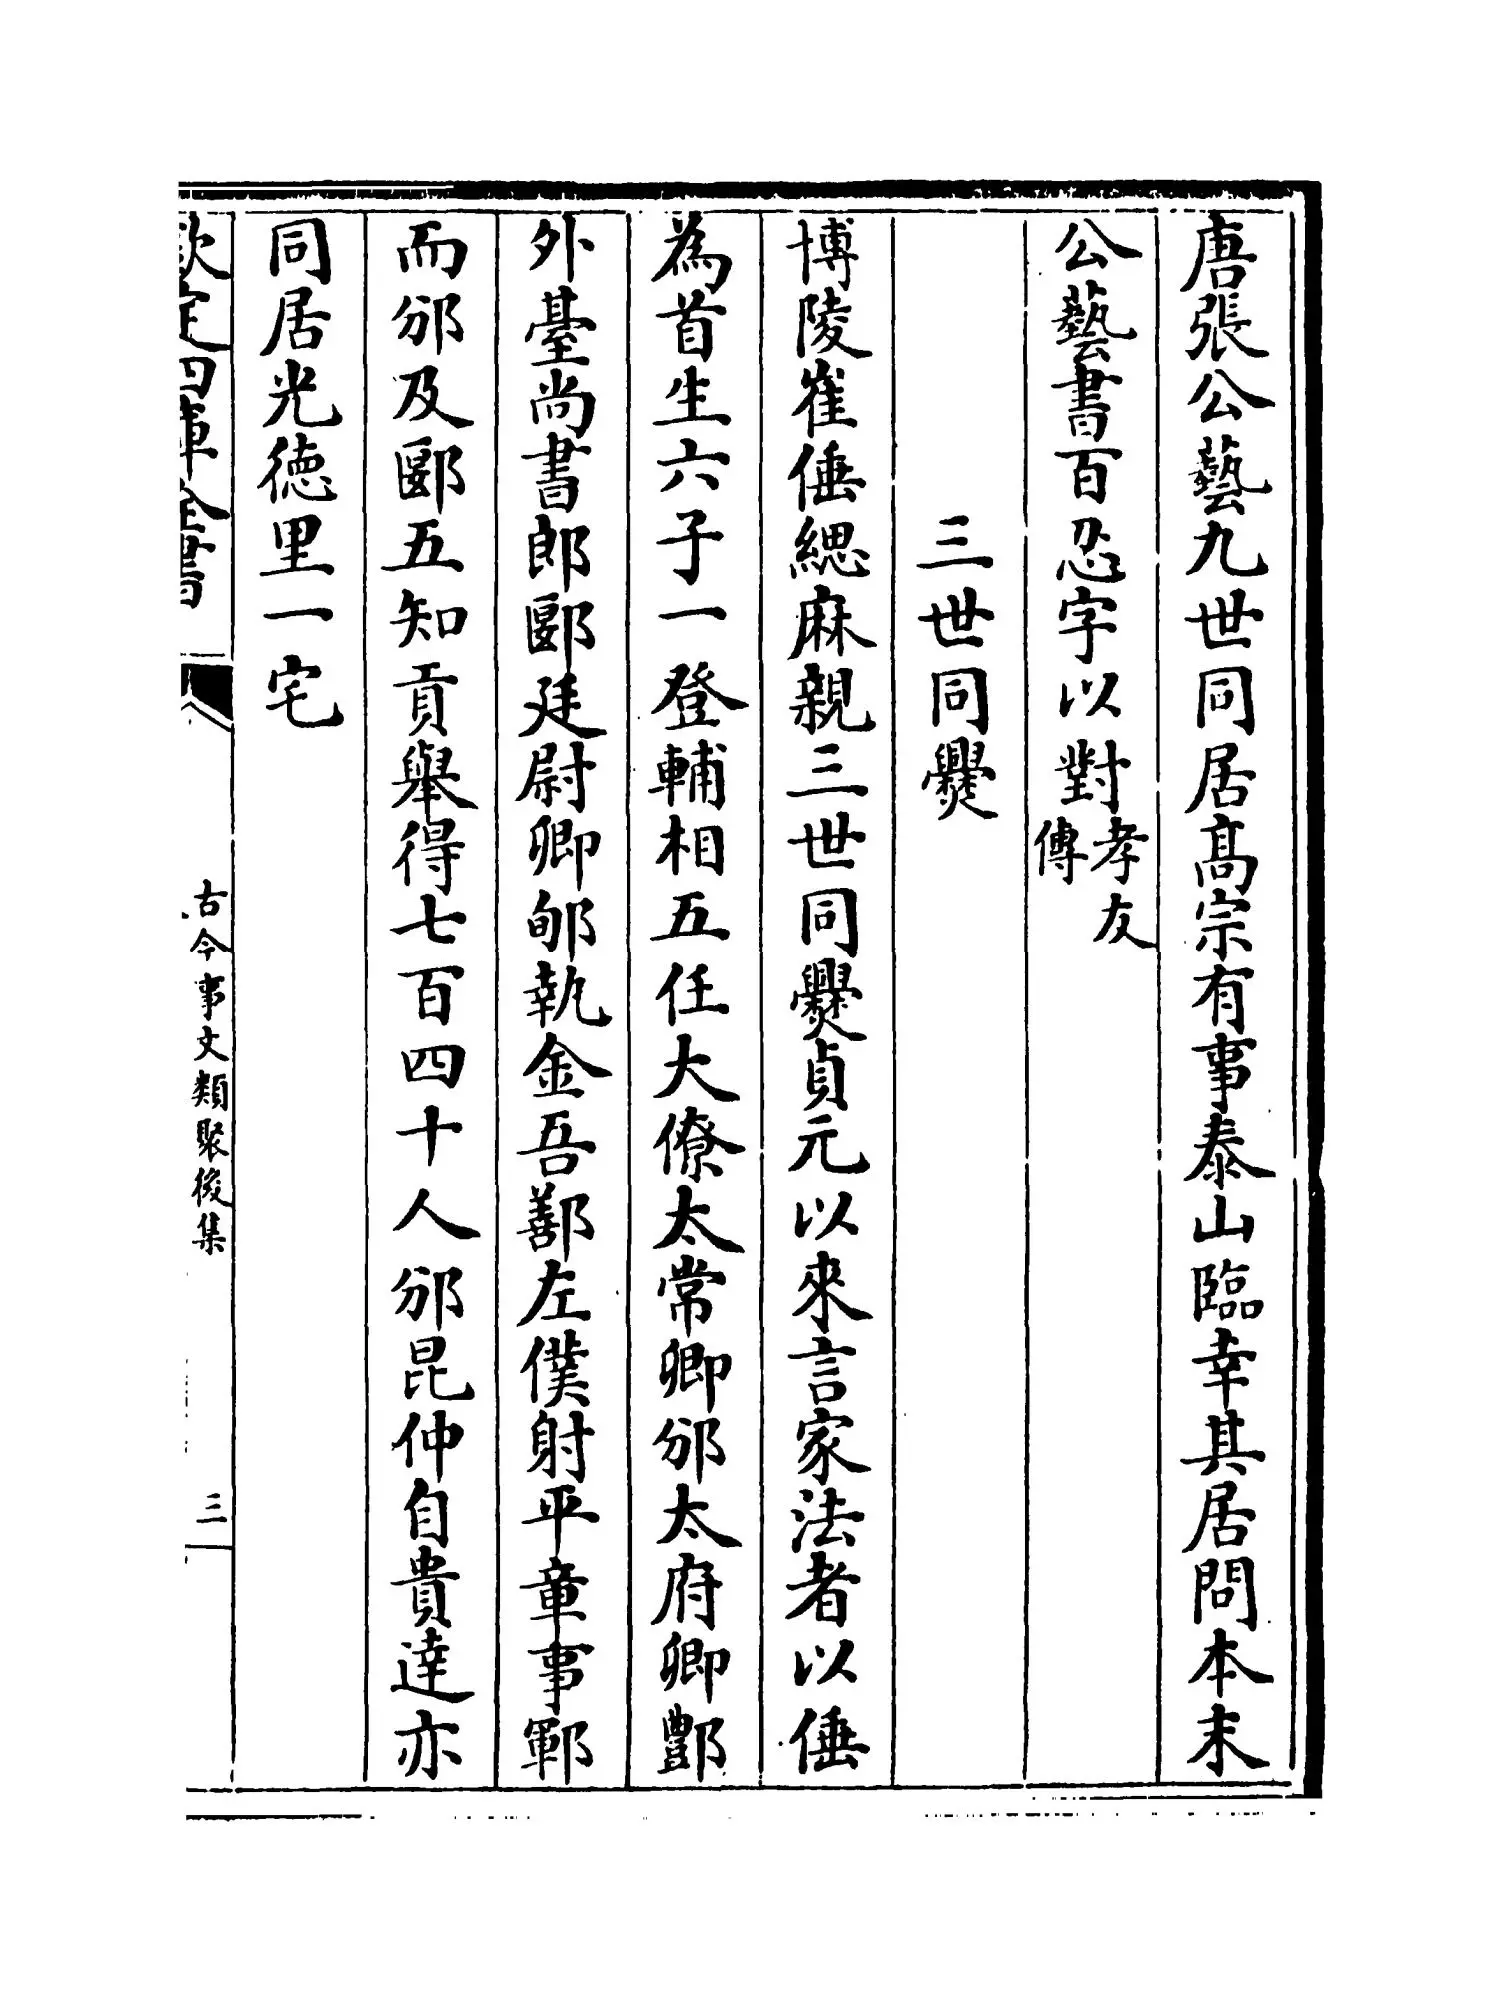 唐張公藝九世同居高宗有事泰山臨幸其居問本末
公藝書百忍字以對孝友傳
三世同爨
博陵崔倕緦麻親三世同爨貞元以來言家法者以倕
為首生六子一登輔相五任大僚太常卿邠太府卿酆
外臺尚書郎郾廷尉卿郇執金吾鄯左僕射平章事鄲
而邠及郾五知貢舉得七百四十人邠昆仲自貴達亦
同居光德里一宅
欽定四庫全書
古今事文類聚後集
三